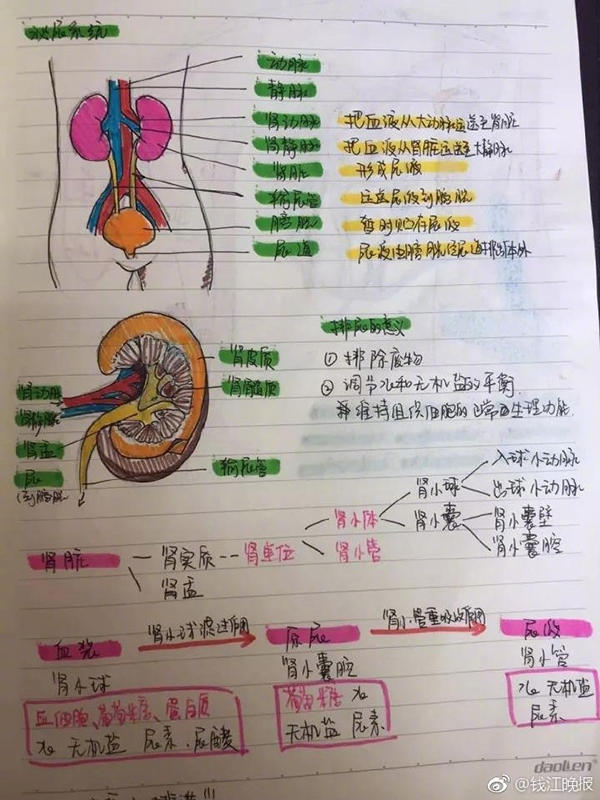 泌尿系统
动脉
静脉
肾动脉 把血液从大动脉运送至肾脏
肾静脉 把血液从肾脏运送至大静脉
肾脏 形成尿液
输尿管 运送尿液到膀胱
膀胱 暂时贮存尿液
尿道 尿液由膀胱经尿道排出体外
排尿的意义
肾皮质 ① 排除废物
肾髓质 ② 调节水和无机盐的平衡
肾动脉
肾静脉 维持组织细胞的正常的生理功能
肾盂
尿 输尿管
(到膀胱)
入球小动脉
肾小球 出球小动脉
肾小体 肾小囊 肾小囊壁
肾脏 肾实质 肾单位 肾小管 肾小囊腔
肾盂
血浆 肾小球滤过作用 原尿 肾小管重吸收作用 尿液
肾小球 肾小囊腔 肾小管
血细胞、葡萄糖、蛋白质 葡萄糖 水 水 无机盐
水 无机盐 尿素、尿酸 无机盐 尿素 尿素
daolien
@钱江晚报